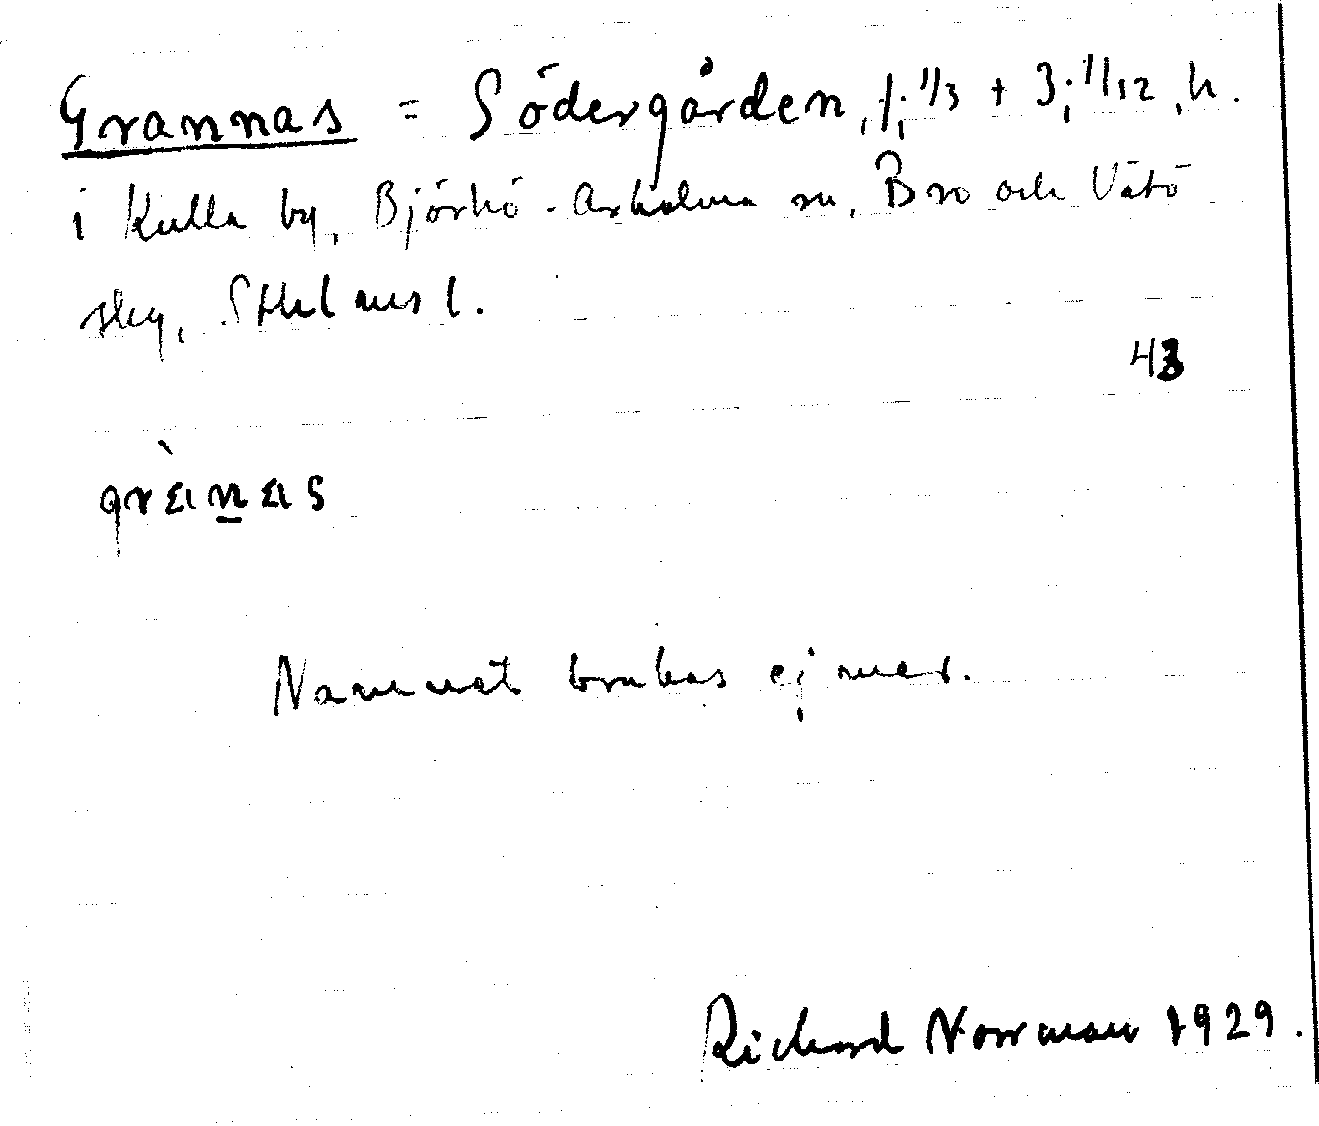 Grannas = Södergården, 1; 1/3 + 3; 1/12, h.
i Kulla by, Björkö-Arholma sn, Bro och Vätö
skg, Sthlms l.
43
Namnet brukas ej mer.
Richard Norrman 1929.